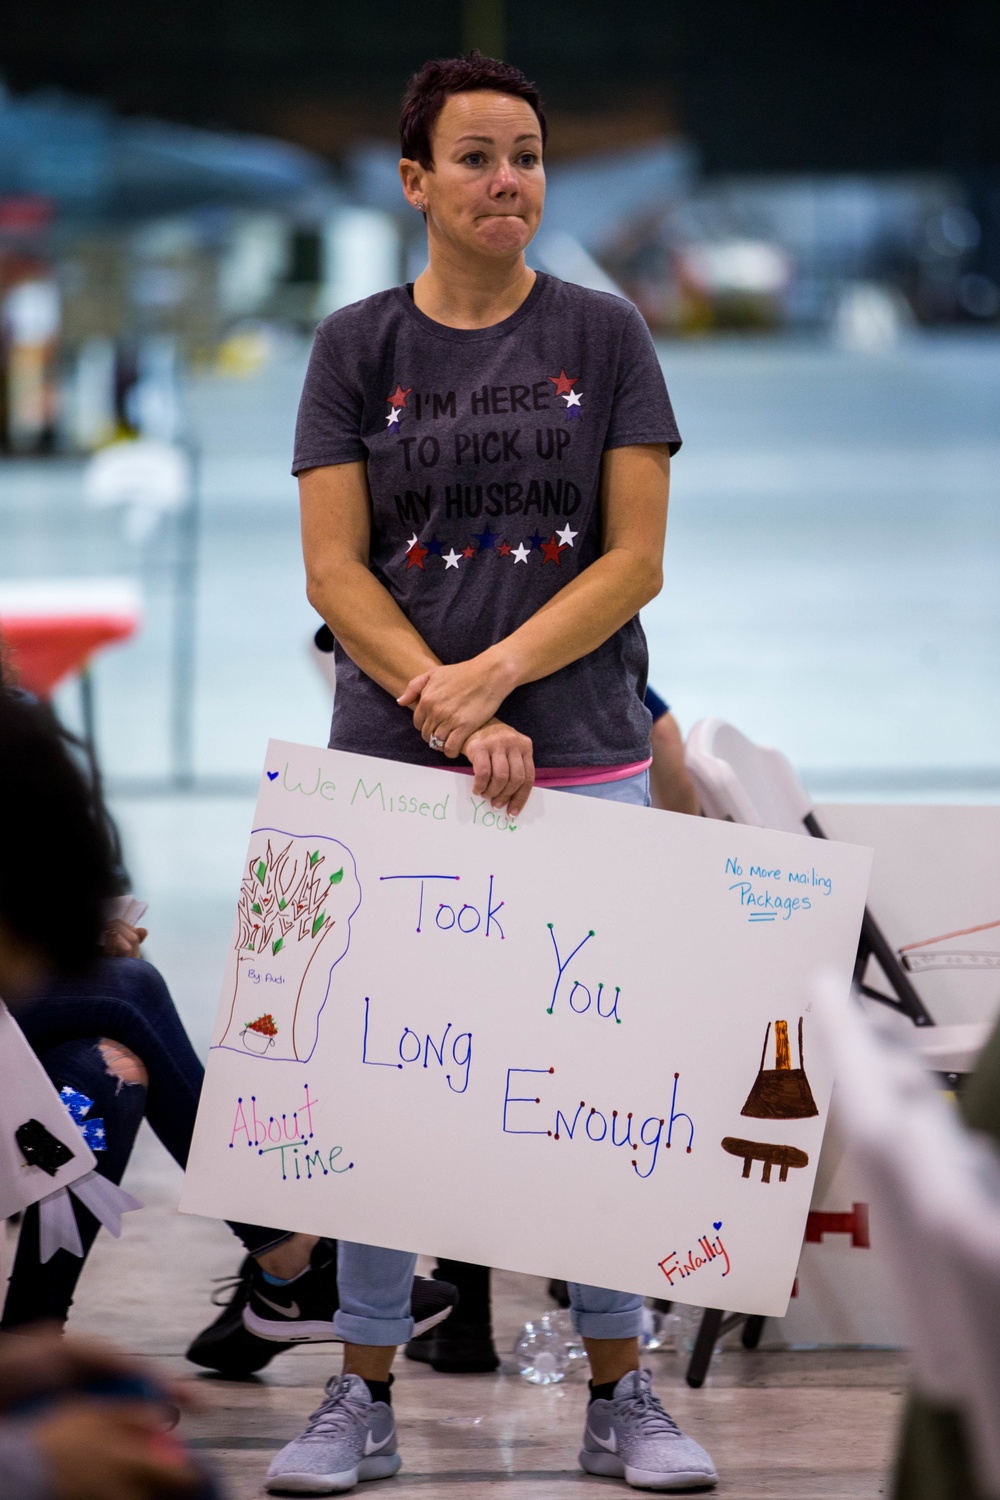 I'M HERE
TO PICK UP
MY HUSBAND
We Missed You
No More Mailing
Packages
Took
You
Long
Enough
By Audi
About
Time
Finally